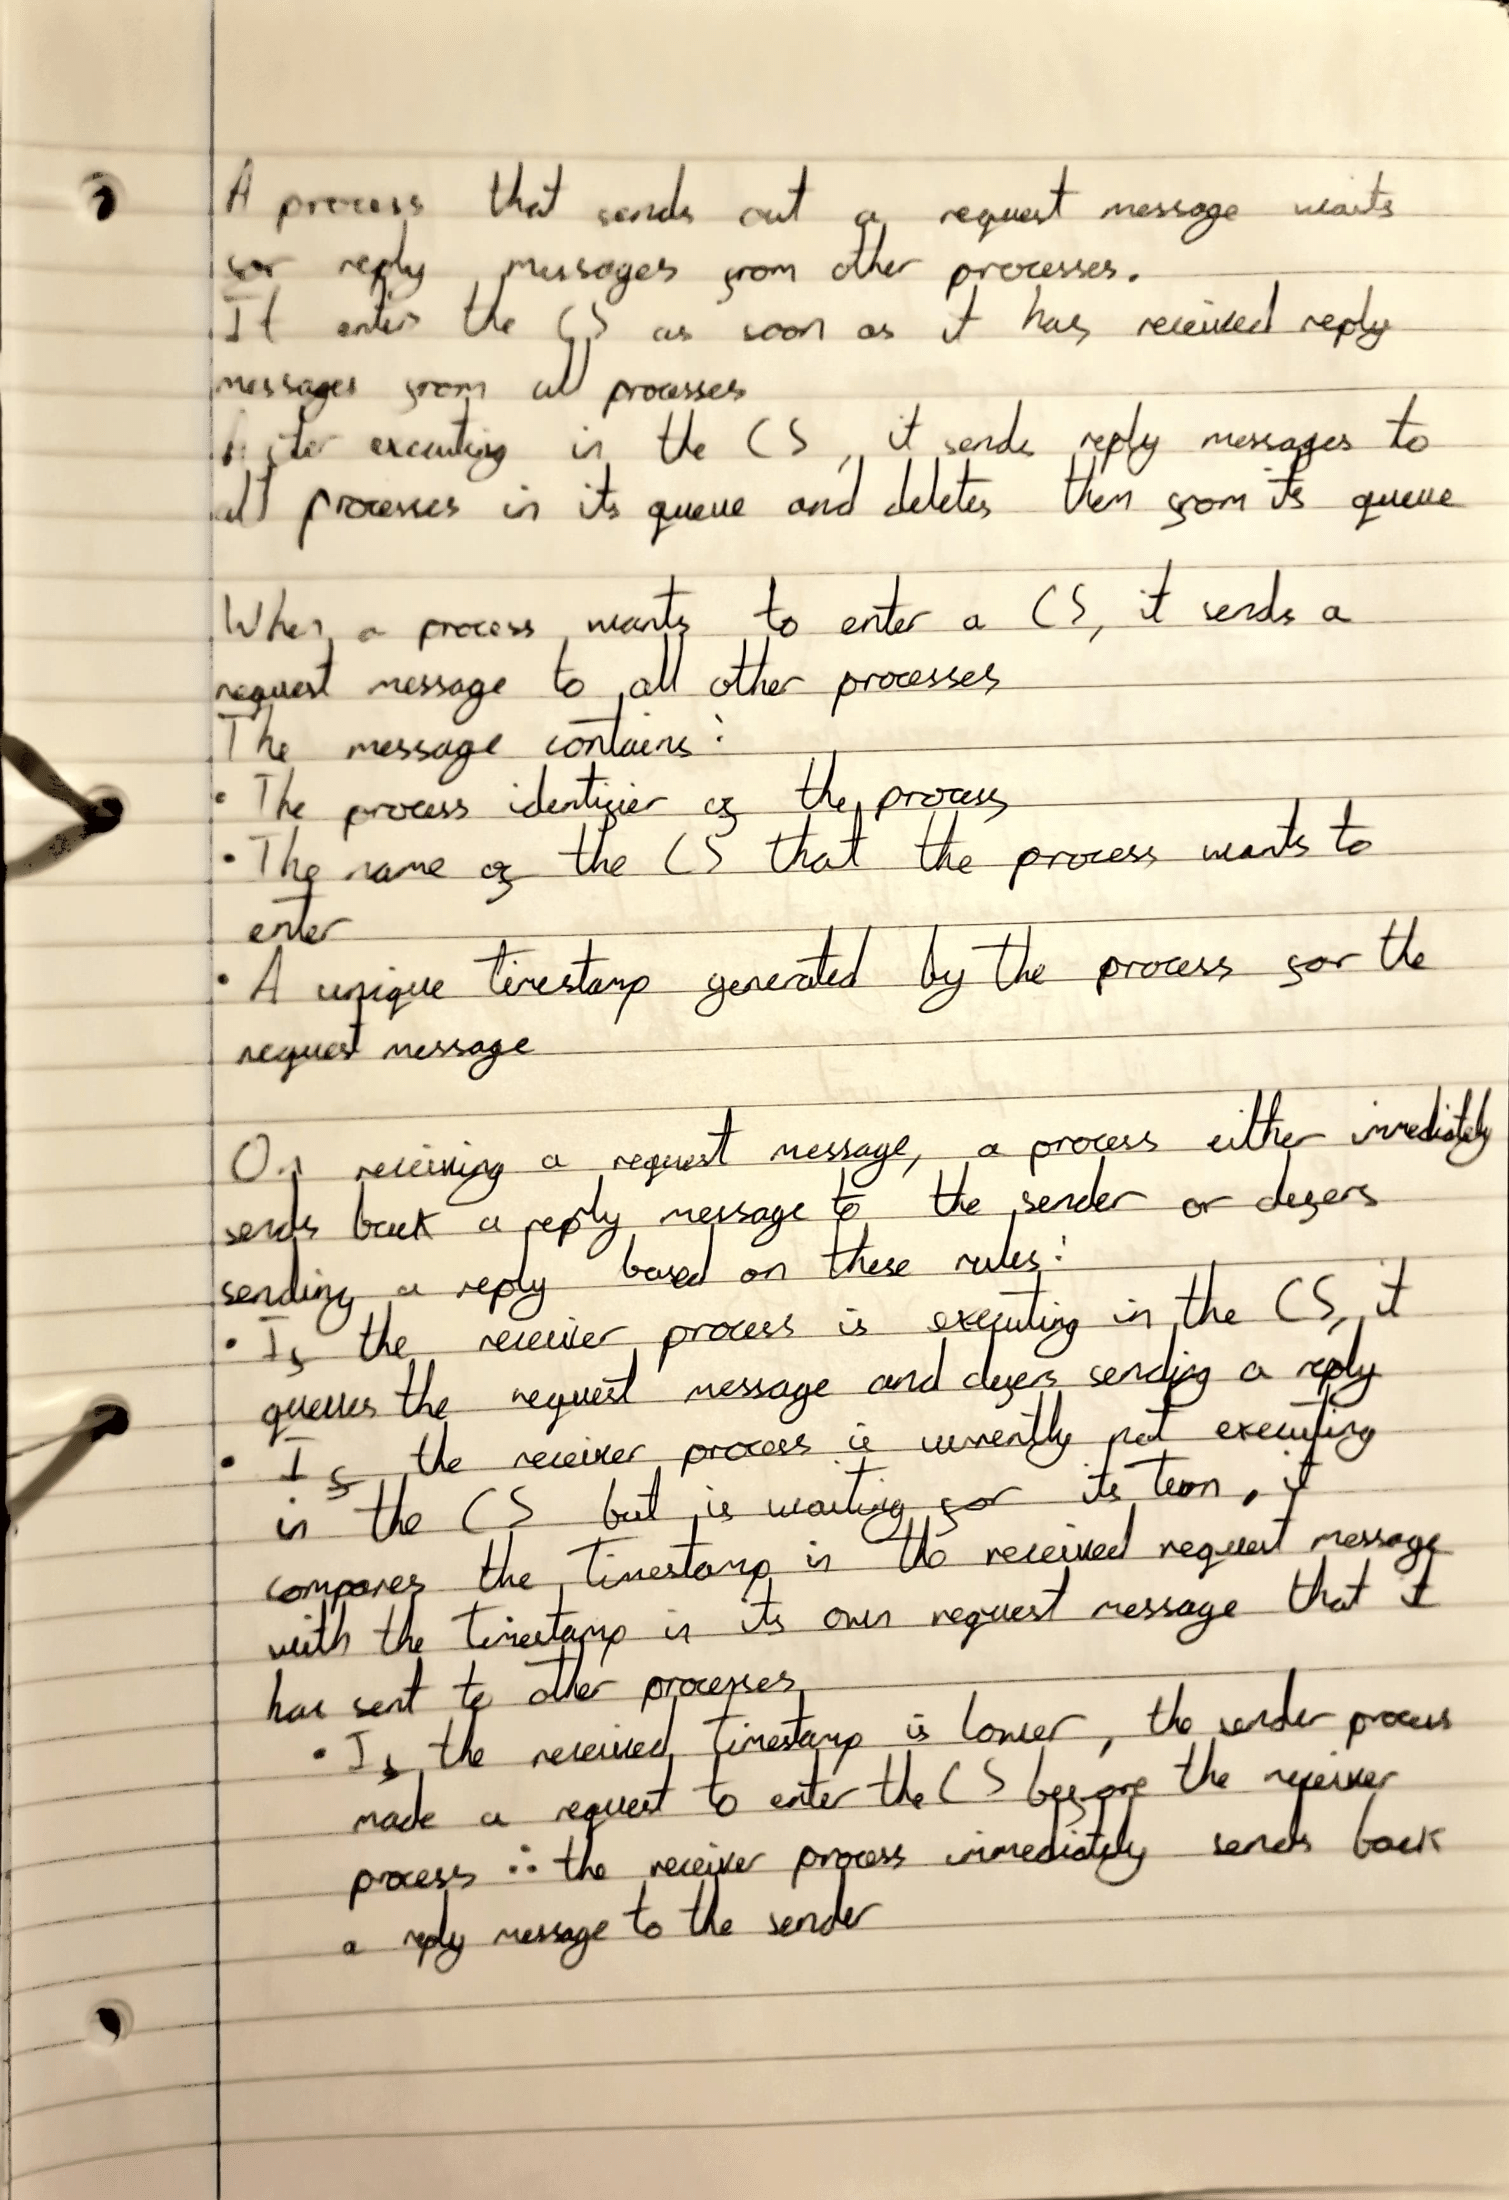 A process that sends out a request message waits
for reply messages from other processes.
It enters the CS as soon as it has received reply
messages from all processes
After executing in the CS, it sends reply messages to
all processes in its queue and deletes them from its queue
When a process wants to enter a CS, it sends a
request message to all other processes
The message contains:
• The process identifier of the process
• The name of the CS that the process wants to
enter
• A unique timestamp generated by the process for the
request message
On receiving a request message, a process either immediately
sends back a reply message to the sender or defers
sending a reply based on these rules:
• If the receiver process is executing in the CS, it
queues the request message and defers sending a reply
• If the receiver process is currently not executing
in the CS but is waiting for its turn, it
compares the timestamp in the received request message
with the timestamp in its own request message that it
has sent to other processes
• If the received timestamp is lower, the sender process
made a request to enter the CS before the receiver
process ∴ the receiver process immediately sends back
a reply message to the sender